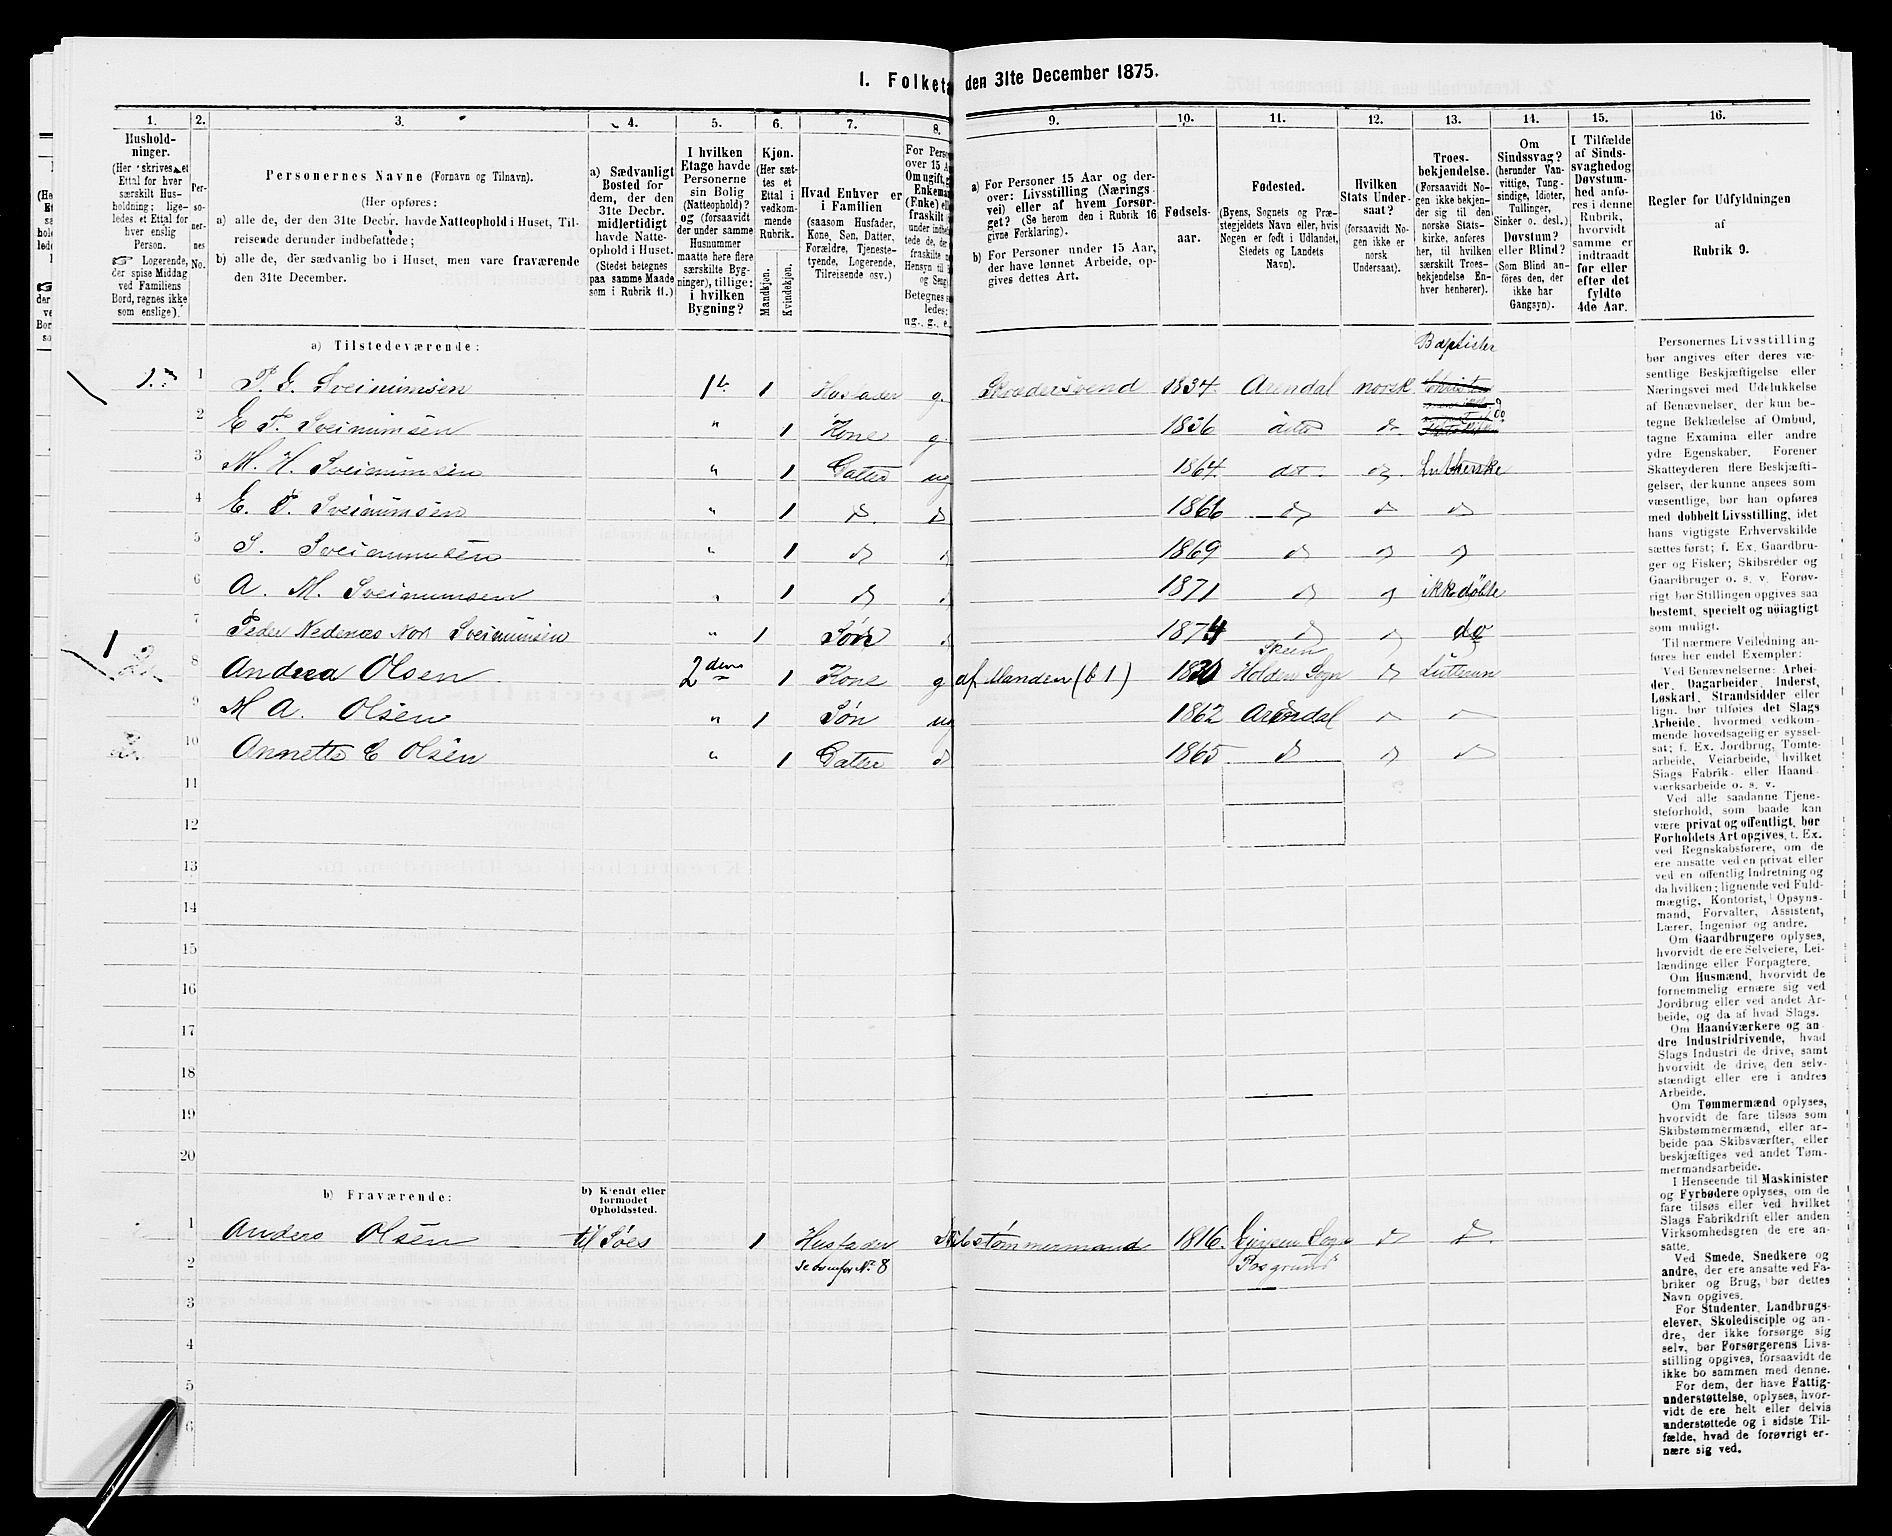 1. Folketæ den 31te December 1875.
1. 2. 3. 4. 5. 6. 7. 8. 9. 10. 11. 12. 13. 14. 15. 16.
Hushold-
ninger.
(Her skrives et
Ettal for hver
særskilt Hus-
holdning; lige-
ledes et Ettal for
hver enslig
Person.
☞ Logerende,
der spise Middag
ved Familiens
Bord, regnes ikke
som enslige).
Per-
so-
ner-
nes
No.
Personernes Navne (Fornavn og Tilnavn).
(Her opføres:
a) alle de, der den 31te Decbr. havde Natteophold i Huset, Til-
reisende derunder indbefattede;
b) alle de, der sædvanlig bo i Huset, men vare fraværende
den 31te December.
a) Sædvanligt
Bosted for
dem, der den
31te Decbr.
midlertidigt
havde Natte-
ophold i Huset.
(Stedet betegnes
paa samme Maade
som i Rubrik 11.)
I hvilken
Etage havde
Personerne
sin Bolig
(Natteophold)?
og (forsaavidt
der under samme
Husnummer
maatte høre flere
særskilte Byg-
ninger), tillige:
i hvilken
Bygning?
Kjøn.
(Her sæt-
tes et
Ettal i
vedkom-
mende
Rubrik.
Mandkjøn.
Kvindekjøn.
Hvad Enhver er
i Familien
(saasom Husfader,
Kone, Søn, Datter,
Forældre, Tjeneste-
tyende, Logerende,
Tilreisende osv.)
For Person
over 15 A
Om ugift, g
Enkeman
(Enke) elle
fraskilt
Betegnes s
ledes:
ug., g., e.
a) For Personer 15 Aar og der-
over: Livsstilling (Nærings-
vei) eller af hvem forsør-
get? (Se herom den i Rubrik 16
givne Forklaring).
b) For Personer under 15 Aar,
der have lønnet Arbeide, op-
gives dettes Art.
Fødsels-
aar.
Fødested.
(Byens, Sognets og Præ-
stegjeldets Navn eller, hvis
Nogen er født i Udlandet,
Stedets og Landets
Navn).
Hvilken
Stats Under-
saat?
(forsaavidt No-
gen ikke er
norsk
Undersaat).
Troes-
bekjendelse.
(Forsaavidt No-
gen ikke bekjen-
der sig til den
norske Stats-
kirke, anføres
her, til hvilken
særskilt Troes-
bekjendelse En-
hver henhører).
Om
Sindssvag?
(herunder Van-
vittige, Tung-
sindige, Idioter,
Tullinger,
Sinker o. desl.)
Døvstum?
eller Blind?
(Som Blind an-
føres den, der
ikke har
Gangsyn).
I Tilfælde
af Sinds-
svaghed og
Døvstum-
hed anfø-
res i denne
Rubrik,
hvorvidt
samme er
indtraadt
før eller
efter det
fyldte
4de Aar.
Regler for Udfyldningen
af
Rubrik 9.
a) Tilstedeværende:
Baptister
1. 1 P. G. Sveinumsen 1ste 1 Husfader g. Skrædersvend 1834 Arendal norsk
2 E P. Sveinumsen " 1 Kone g 1836 ditto do do
3 M. H. Sveinumsen " 1 Datter ug 1864 do do Lutherske
4 E. P. Sveinumsen " 1 do do 1866 do do do
5 S. Sveinumsen " 1 do do 1869 do do do
6 A. M. Sveinumsen " 1 do do 1871 do do ikke døbte
7 Peder Nedenæs Sveinumsen " 1 Søn do 1874 do do do
Skeen
1 8 Andrea Olsen 2den 1 Kone g af Manden (b 1) 1830 Holden Sogn do
9 M A. Olsen " 1 Søn ug 1862 Arendal do do
10 Annette C Olsen " 1 Datter do 1865 do do do
11
12
13
14
15
16
17
18
19
20
b) Fraværende:
b) Kjendt eller
formodet
Opholdssted.
1 Anders Olsen til Søes 1 Husfader Skibstømmermand 1816 Sogn do do
2 Se ovenfor No 8 Porsgrund
3
4
5
6
Personernes Livsstilling
bør angives efter deres væ-
sentlige Beskjæftigelse eller
Næringsvei med Udelukkelse
af Benævnelser, der kun be-
tegne Beklædelse af Ombud,
tagne Examina eller andre
ydre Egenskaber. Forener
Skatteyderen flere Beskjæfti-
gelser, der kunne ansees som
væsentlige, bør han opføres
med dobbelt Livsstilling, idet
hans vigtigste Erhvervskilde
sættes først; f. Ex. Gaardbru-
ger og Fisker; Skibsreder og
Gaardbruger o. s. v. Forøv-
rigt bør Stillingen opgives saa
bestemt, specielt og nøiagtigt
som muligt.
Til nærmere Veiledning an-
føres her endel Exempler:
Ved Benævnelserne: Arbei-
der, Dagarbeider, Inderst,
Løskarl, Strandsidder eller
lign. bør tilføies det Slags
Arbeide, hvormed vedkom-
mende hovedsagelig er syssel-
sat; f. Ex. Jordbrug, Tomte-
arbeide, Veiarbeide, hvilket
Slags Fabrik- eller Haand-
værksarbeide o. s. v.
Ved alle saadanne Tjene-
steforhold, som baade kan
være privat og offentligt, bør
Forholdets Art opgives, t. Ex.
ved Regnskabsførere, om de
ere ansatte ved en privat eller
ved en offentlig Indretning og
da hvilken; lignende ved Fuld-
mægtig, Kontorist, Opsyns-
mand, Forvalter, Assistent,
Lærer, Ingeniør og andre.
Om Gaardbrugere oplyses,
hvorvidt de ere Selveiere, Lei-
lændinge eller Forpagtere.
Om Husmænd, hvorvidt de
fornemmelig ernære sig ved
Jordbrug eller ved andet Ar-
beide, og da af hvad Slags.
Om Haandværkere og an-
dre Industridrivende, hvad
Slags Industri de drive, samt
hvorvidt de drive den selv-
stændigt eller ere i andres
Arbeide.
Om Tømmermænd oplyses,
hvorvidt de fare tilsøs som
Skibstømmermænd, eller ar-
beide paa Skibsværfter, eller
beskjæftiges ved andet Tøm-
mermandsarbeide.
I Henseende til Maskinister
og Fyrbødere oplyses, om de
fare tilsøs eller ved hvilket
Slags Fabrikdrift eller anden
Virksomhedsgren de ere an-
satte.
Ved Smede, Snedkere og
andre, der ere ansatte ved Fa-
briker og Brug, bør dettes
Navn opgives.
For Studenter, Landbrugs-
elever, Skoledisciple og an-
dre, der ikke forsørge sig
selv, bør Forsørgerens Livs-
stilling opgives, forsaavidt de
ikke bo sammen med denne.
For dem, der have Fattig-
understøttelse, oplyses, hvor-
vidt de ere helt eller delvis
understøttede og i sidste Til-
fælde, hvad de forøvrigt er-
nære sig ved.